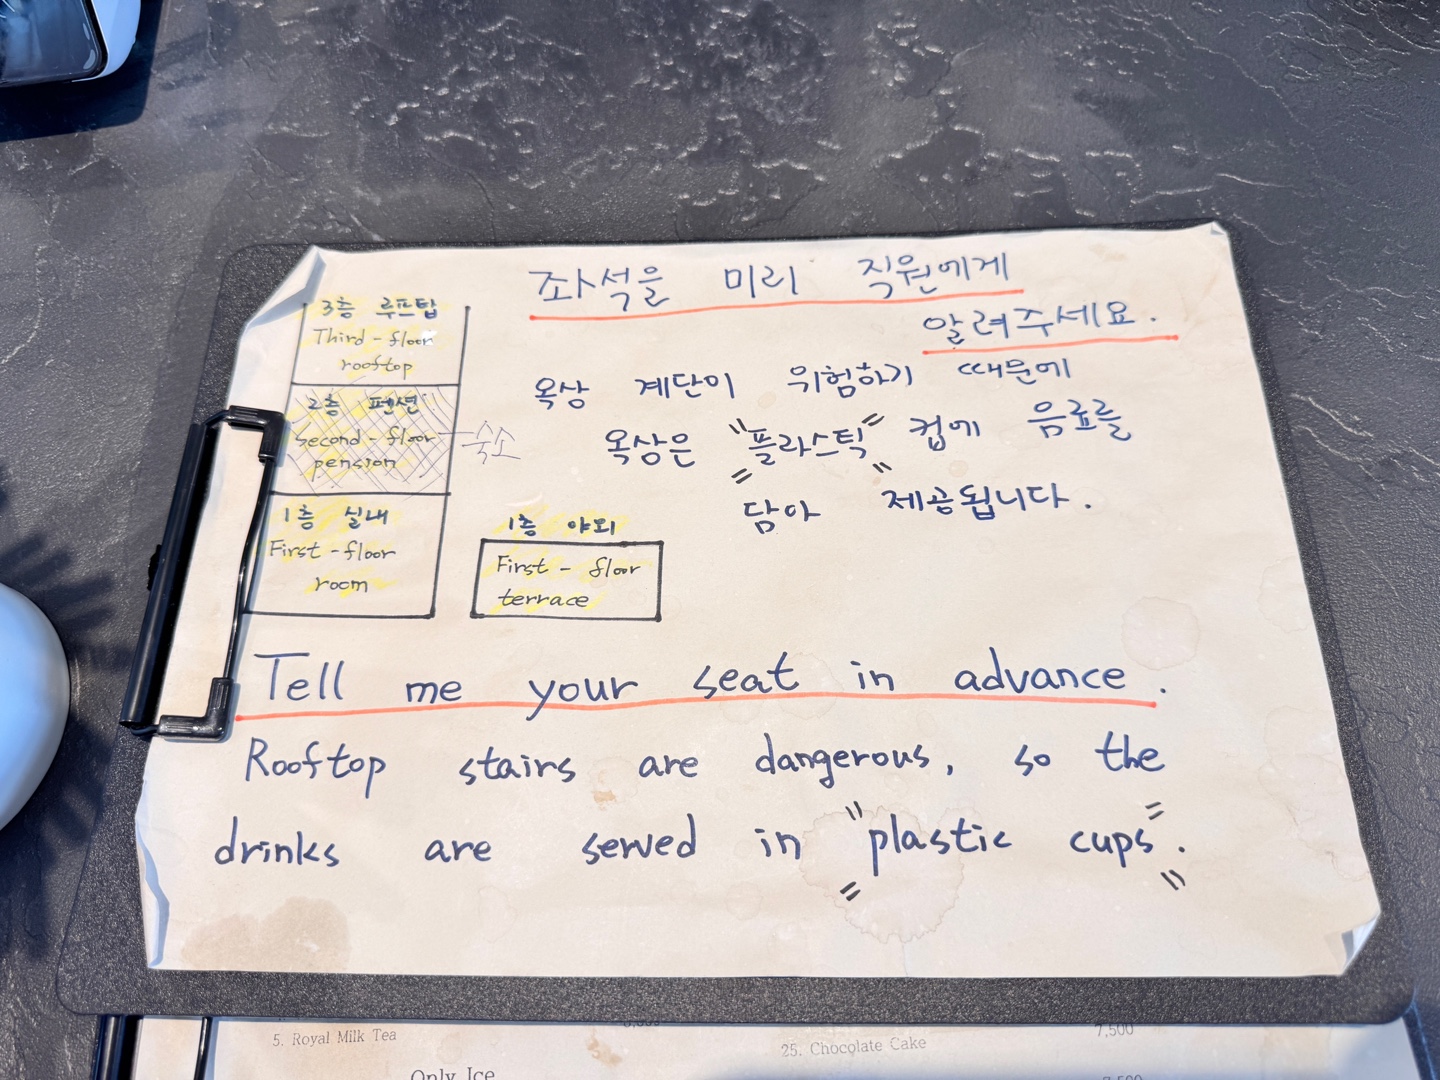 좌석을 미리 직원에게
알려주세요.
옥상 계단이 위험하기 때문에
옥상은 "플라스틱" 컵에 음료를
담아 제공됩니다.
3층 루프탑
Third-floor
rooftop
2층 펜션
Second-floor
pension
숙소
1층 실내
First-floor
room
1층 야외
First-floor
terrace
Tell me your seat in advance.
Rooftop stairs are dangerous, so the
drinks are served in "plastic cups".
5. Royal Milk Tea
25. Chocolate Cake 7,500
Only Ice